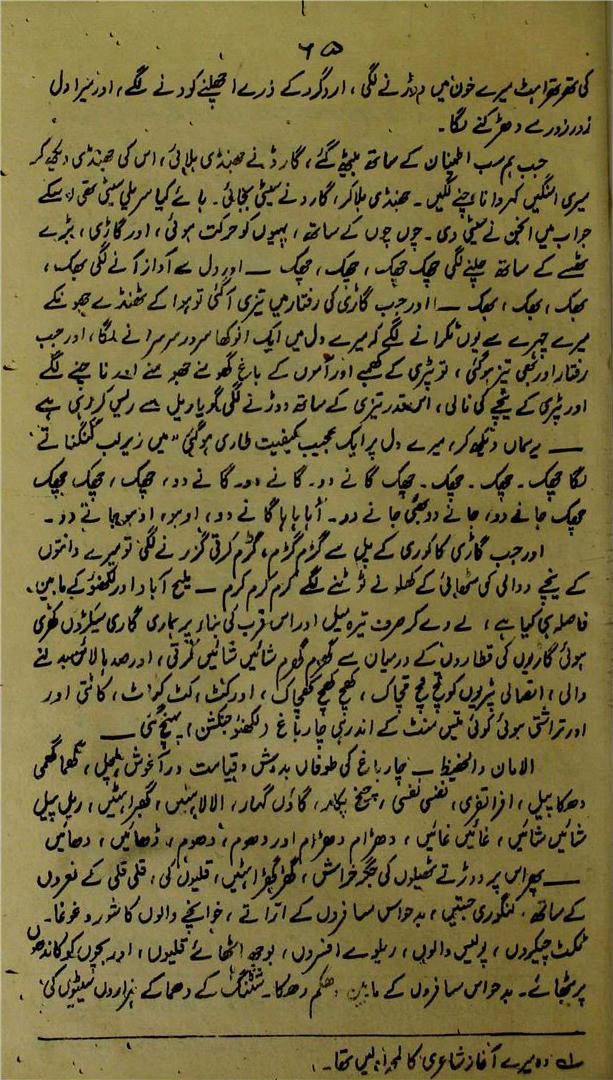 ۶۵
کی تھرتھراہٹ میرے خون میں دوڑنے لگی، ارد گرد کے ذرے اچھلنے کودنے لگے، اور میرا دل
زور زور سے دھڑکنے لگا۔
جب ہم سب اطمینان کے ساتھ بیٹھ گئے، گارڈ نے جھنڈی ہلائی، اس کی جھنڈی دیکھ کر
میری امنگیں کہروا ناچنے لگیں۔ جھنڈی ہلا کر، گارڈ نے سیٹی بجائی۔ ہائے کیا سریلی سیٹی تھی اسکے
جواب میں انجن نے سیٹی دی۔ چوں چوں کے ساتھ، پہیوں کو حرکت ہوئی، اور گاڑی، بڑے
ٹھسے کے ساتھ چلنے لگی چھک چھک، چھک، چھک — اور دل سے آواز آنے لگی بھک،
بھک، بھک، بھک — اور جب گاڑی کی رفتار میں تیزی آگئی تو ہوا کے ٹھنڈے جھونکے
میرے چہرے سے یوں ٹکرانے لگے کہ میرے دل میں ایک انوکھا سرور سرسرانے لگا، اور جب
رفتار اور بھی تیز ہوگئی، تو پٹری کے کھمبے اور آموں کے باغ گھومنے جھومنے اور ناچنے لگے
اور پٹری کے نیچے کی نالی، اس قدر تیزی کے ساتھ دوڑنے لگی گویا ریل سے ریس کر رہی ہے
— یہ سماں دیکھ کر، میرے دل پر ایک عجیب کیفیت طاری ہوگئی میں زیر لب گنگنانے
لگا چھک۔ چھک۔ چھک۔ چھک گانے دو۔ گانے دو۔ گانے دو، چھک، چھک، چھک
چھک جانے دو، جانے دو بھئی جانے دو۔ آہا ہا ہا گانے دو، اوہو، اوہو جانے دو۔
اور جب گاڑی کاکوری کے پل سے گڑم گڑم، گڑم کرتی گزرنے لگی تو میرے دانتوں
کے نیچے دوالی کی مٹھائی کے کھلونے ٹوٹنے لگے کرم کرم کرم — ملیح آباد اور لکھنؤ کے مابین،
فاصلہ ہی کیا ہے، لے دے کر صرف تیرہ میل اور اس قرب کی بناء پر ہماری گاڑی سیکڑوں کھڑی
ہوئی گاڑیوں کی قطاروں کے درمیان سے گھم گھم شائیں شائیں کرتی، اور صدہا لائن بدلنے
والی، اتصالی پٹریوں کو قچ قچ قچاک، کھچ کھچ کھچاک، اور کٹ، کٹ کواٹ، کاٹتی اور
اور تراشتی ہوئی کوئی بیس منٹ کے اندر ہی چار باغ (لکھنؤ جنکشن) پہنچ گئی —
الامان والحفیظ — چار باغ کی طوفاں بدوش و قیامت در آغوش ہلچل، گہما گہمی
دھکا پیل، افراتفری، نفسی نفسی، چیخ پکار، گاؤں گہار، گھبراہٹیں، ریل پیل
شائیں شائیں، غائیں غائیں، دھڑام دھڑام اور دھوم، دھوم، ڈھائیں، دھائیں
— پھر اس پر دوڑتے ٹھیلوں کی جگر خراش، گھڑ گھڑاہٹیں، قلیوں کی، قلی قلی کے نعروں
کے ساتھ، لنگوری جستیں، بدحواس مسافروں کے اڑاتے، خوانچے والوں کا شور و غوغا۔
ٹکٹ چیکروں، پولیس والوں، ریلوے افسروں، بوجھ اٹھائے قلیوں، اور بچوں کو کاندھوں
پر بٹھائے۔ بدحواس مسافروں کے مابین دھکم دھکا۔ شنٹنگ کے دھماکے ہزاروں سیٹیوں کی
؂۱ وہ میرے آغاز شاعری کا لمحۂ اولیں تھا۔